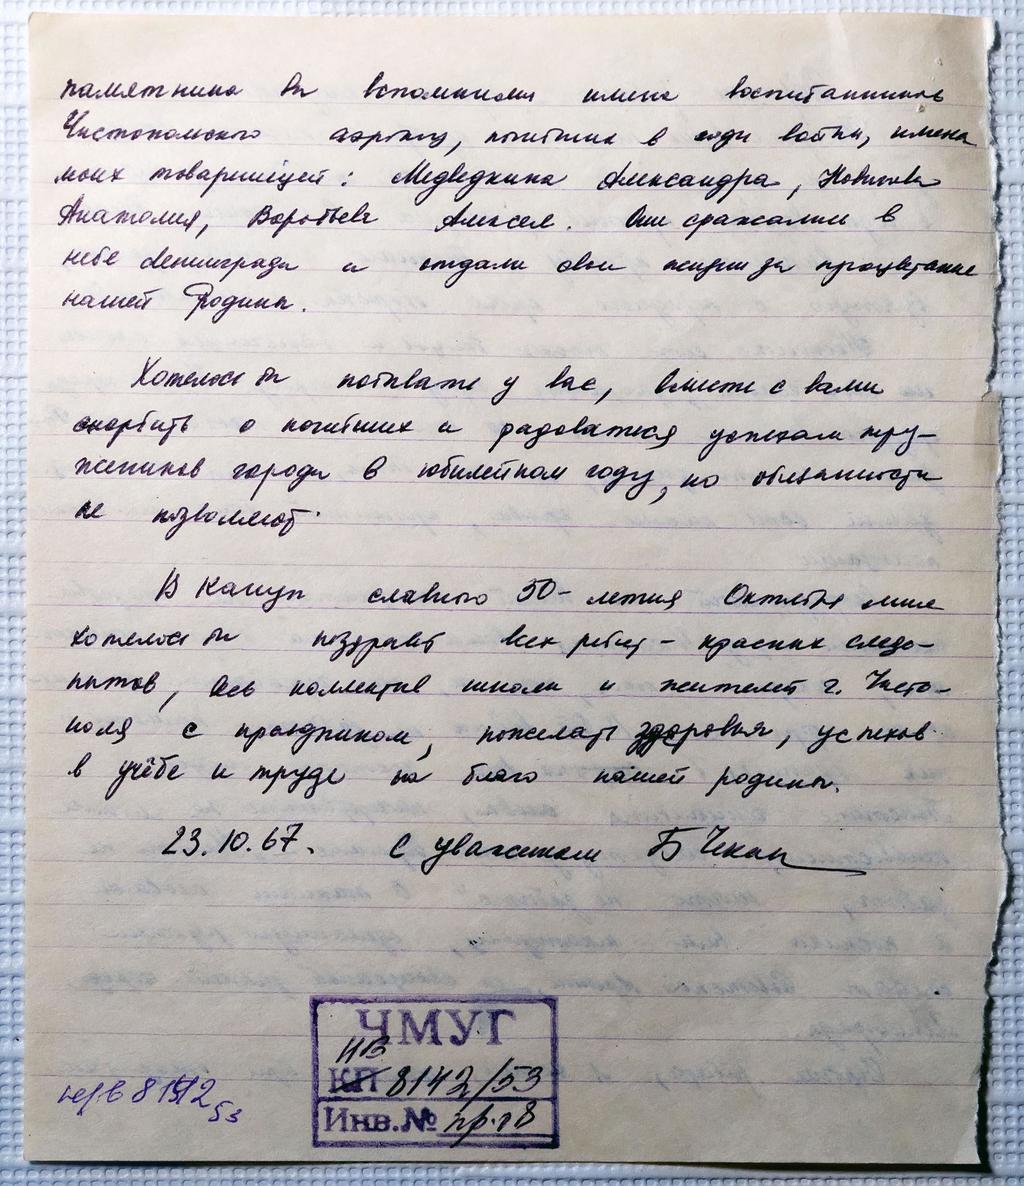 памятника вы вспомнили имена воспитанников
Чистопольского аэроклуба, погибших в годы войны, имена
моих товарищей: Медведкина Александра, Новикова
Анатолия, Воробьева Алексея. Они сражались в
небе Ленинграда и отдали свои жизни за процветание
нашей Родины.
Хотелось бы побывать у вас, вместе с вами
скорбить о погибших и радоваться успехам тру-
жеников города в юбилейном году, но обязанности
не позволяют.
В канун славного 50-летия Октября мне
хотелось бы поздравить всех ребят - красных следо-
пытов, весь коллектив школы и жителей г. Чисто-
поля с праздником, пожелать здоровья, успехов
в учёбе и труде на благо нашей родины.
23.10.67. С уважением Б Чекин
ЧМУГ
НВ
КП 8142/53
Инв.№ пр.18
8142
53